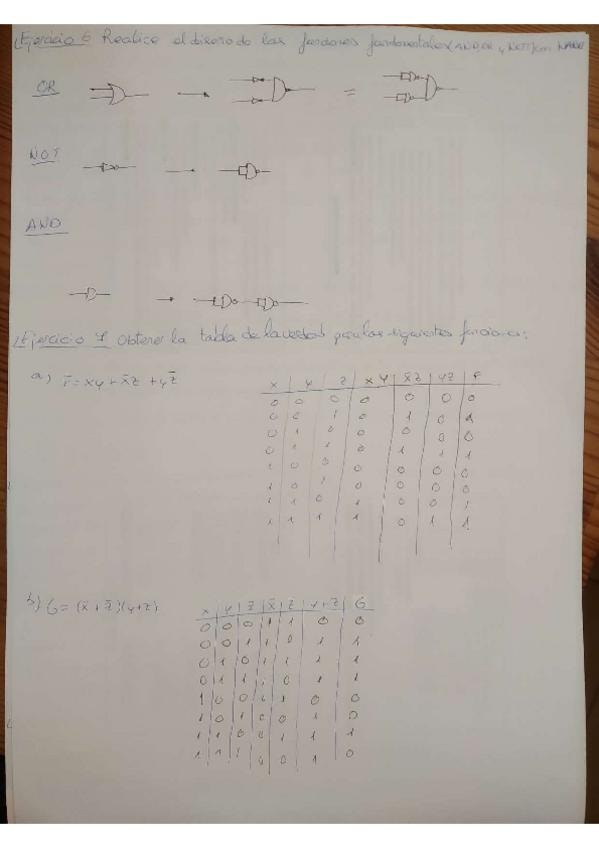 Ejercicio 6 Realice el diseño de las funciones fundamentales (AND, OR y NOT) con NAND
OR
=
NOT
AND
Ejercicio 7 Obtener la tabla de la verdad para las siguientes funciones:
a) F = xy + x̄z + yz̄
x y z xy x̄z yz F
0 0 0 0 0 0 0
0 0 1 0 1 0 1
0 1 0 0 0 0 0
0 1 1 0 1 1 1
1 0 0 0 0 0 0
1 0 1 0 0 0 0
1 1 0 1 0 0 1
1 1 1 1 0 1 1
b) G = (x̄ + z̄)(y+z)
x y z x̄ z̄ y+z G
0 0 0 1 1 0 0
0 0 1 1 0 1 1
0 1 0 1 1 1 1
0 1 1 1 0 1 1
1 0 0 0 1 0 0
1 0 1 0 0 1 0
1 1 0 0 1 1 1
1 1 1 0 0 1 0